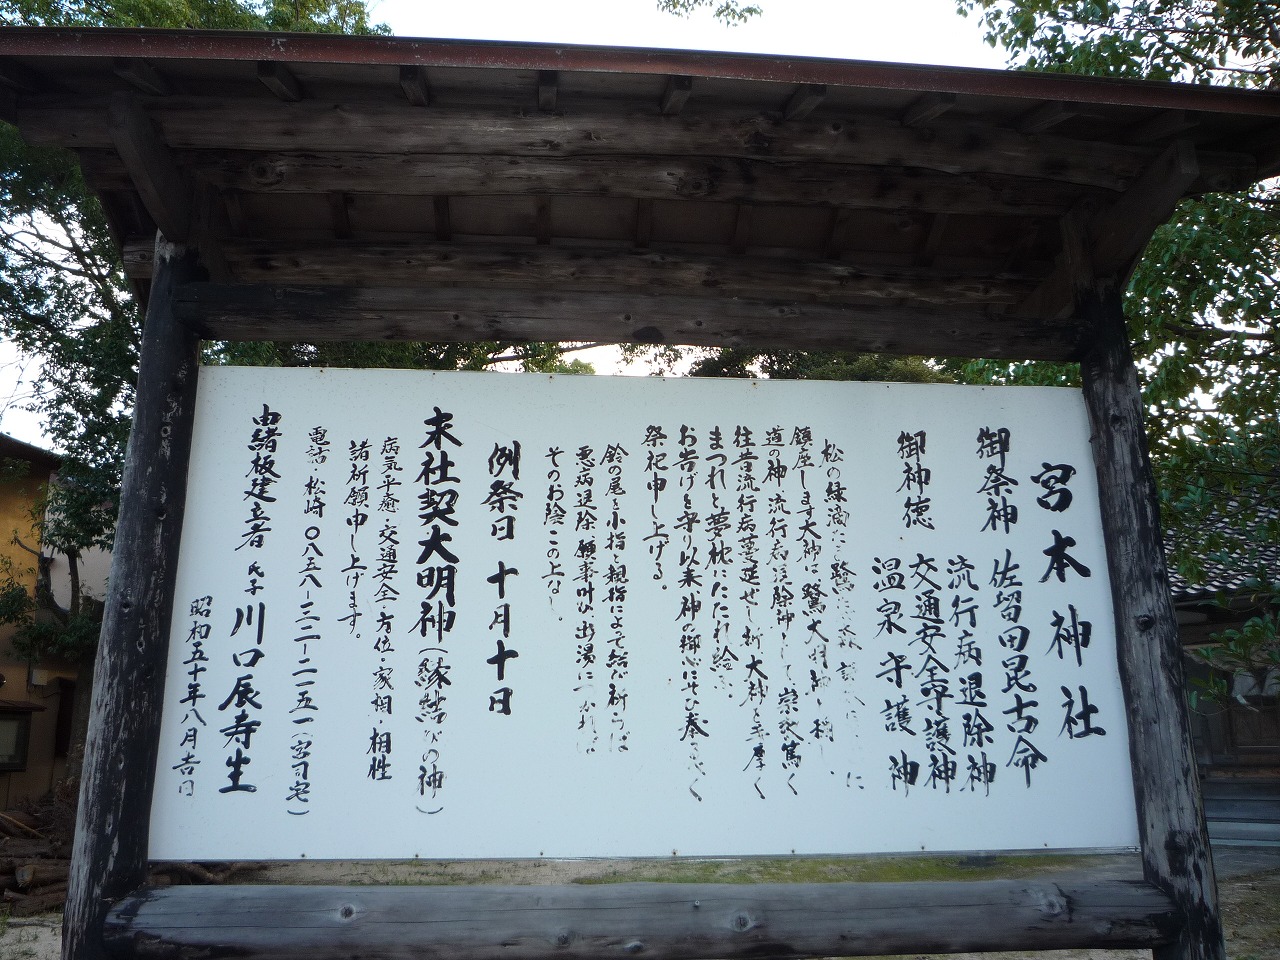 宮本神社
御祭神 佐留田昆古命
御神徳 流行病退除神
交通安全守護神
温泉守護神
松の緑滴
鎮座します大神は鷺大明神と称し
道の神 流行病 除神として崇敬篤く
往昔流行病蔓延せし折 大神を手厚く
まつれと夢枕にたたれ給
お告げを守り以来 神の御心にそひ奉
祭祀申し上げる。
鈴の尾を小指と親指によって結び祈らば
悪病退除 願事叶ひ出湯につかれば
そのお蔭この上なし。
例祭日 十月十日
末社契大明神(縁結びの神)
病気平癒・交通安全・方位・家相・相性
諸祈願申し上げます。
電話・松崎 〇八五八-三二-二一五一(宮司宅)
由緒板建立者 氏子 川口辰寿生
昭和五十年八月吉日